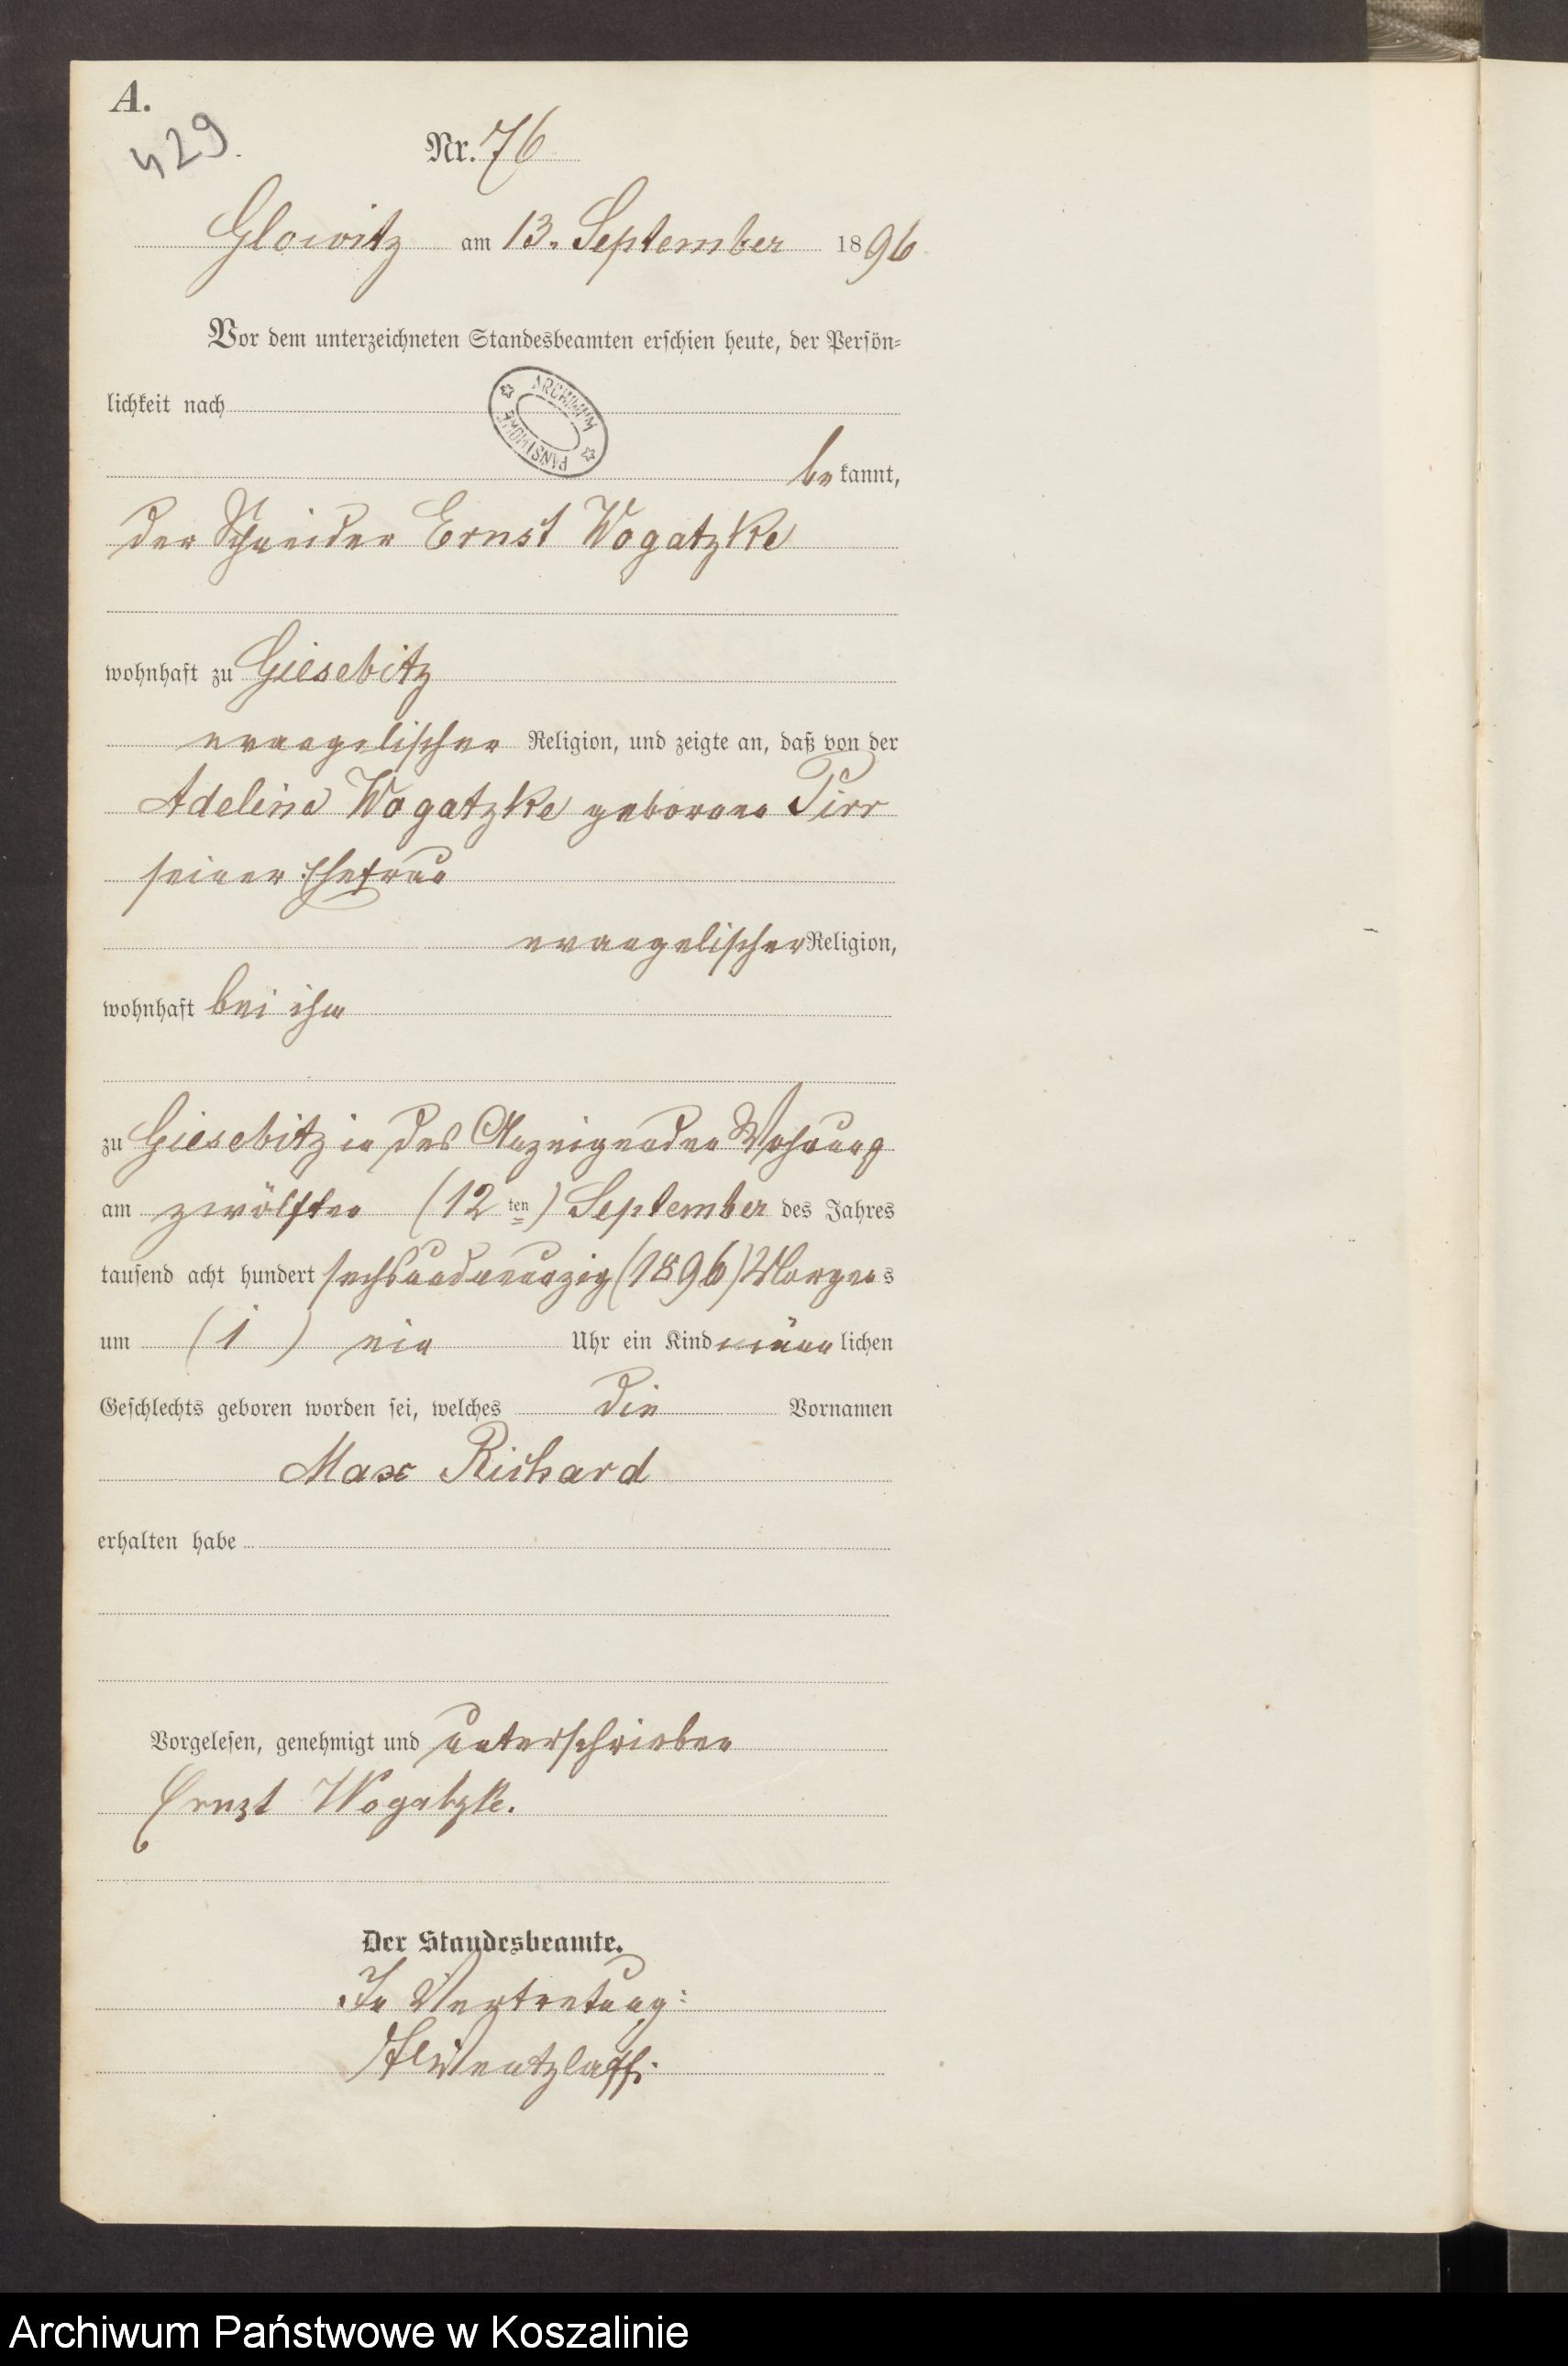 A.
429.
Nr. 76
Glowitz am 13. September 1896
Vor dem unterzeichneten Standesbeamten erschien heute, der Persön-
lichkeit nach
ARCHIWUM PAŃSTWOWE
bekannt,
der Schneider Ernst Wogatzke
wohnhaft zu Giesebitz
evangelischer Religion, und zeigte an, daß von der
Adeline Wogatzke geborene Pirr
seiner Ehefrau
evangelischer Religion,
wohnhaft bei ihm
zu Giesebitz in des Anzeigenden Wohnung
am zwölften (12 ten) September des Jahres
tausend acht hundert sechsundneunzig (1896) Morgens
um (1) ein Uhr ein Kind männlichen
Geschlechts geboren worden sei, welches die Vornamen
Max Richard
erhalten habe
Vorgelesen, genehmigt und unterschrieben
Ernst Wogatzke.
Der Standesbeamte.
In Vertretung:
Archiwum Państwowe w Koszalinie